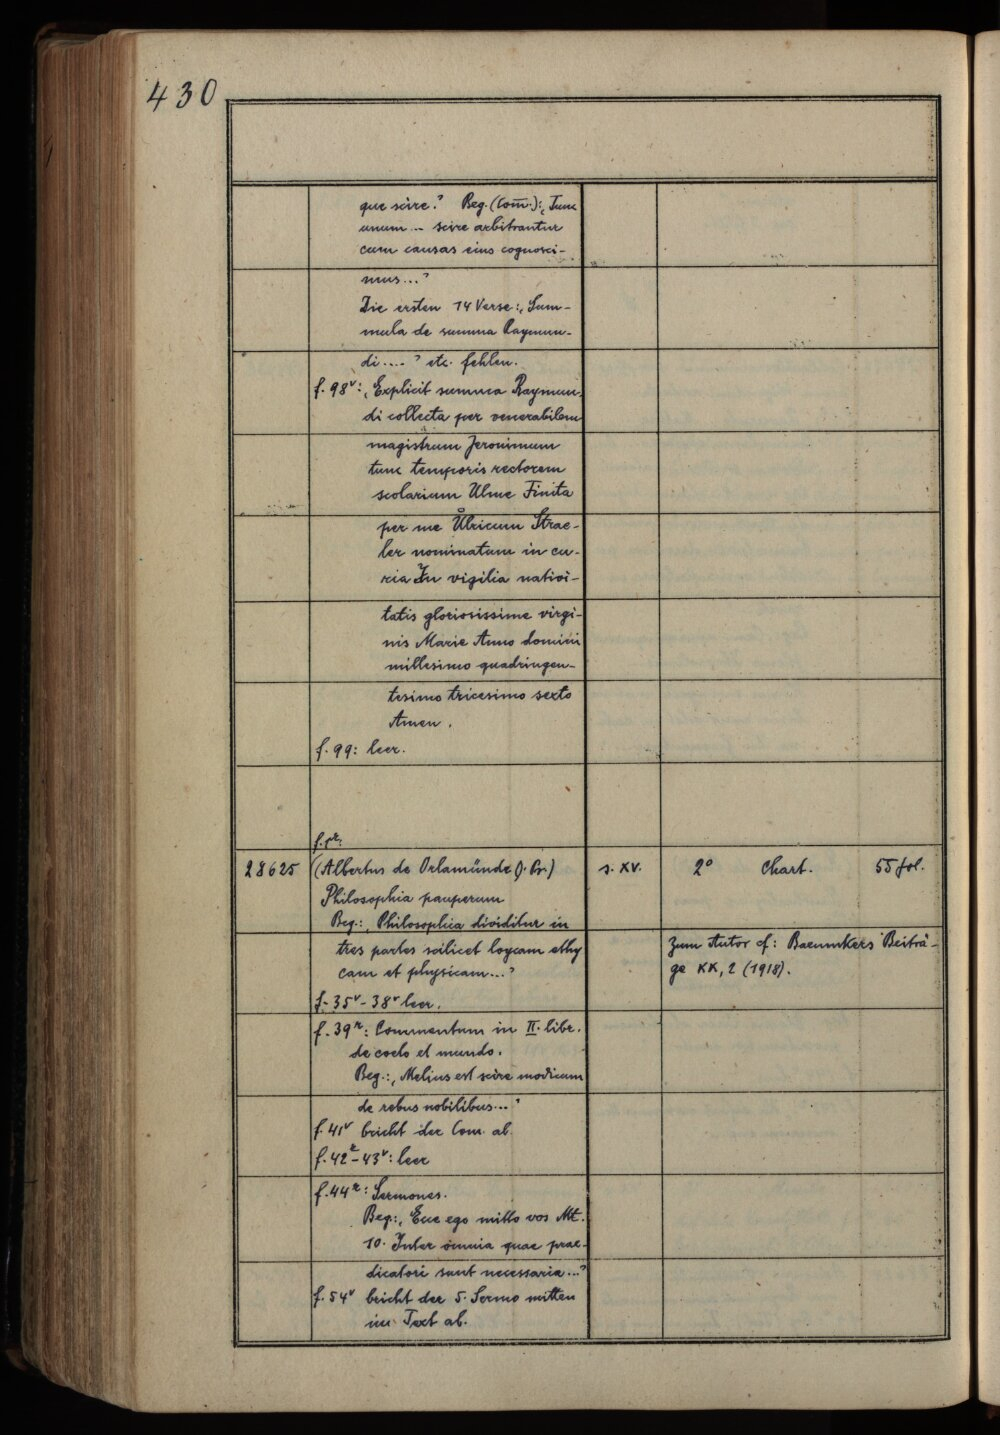 430
que scire." Beg. (Com̄.): „Tunc
unum ... scire arbitrantur
cum causas eius cognosci-
mus..."
Die ersten 14 Verse: „Sum-
mula de summa Raymun-
di ...." etc. fehlen.
f. 98ᵛ: „Explicit summa Raymun-
di collecta per venerabilem
magistrum Jeronimum
tunc temporis rectorem
scolarium Ulme Finita
per me Ůlricum Strae-
ler nominatum in cu-
ria In vigilia nativi-
tatis gloriosissime virgi-
nis Marie Anno domini
millesimo quadringen-
tesimo tricesimo sexto
Amen.
f. 99: leer.
f. 1ʳ:
28625 (Albertus de Orlamünde O. Pr.) s. XV. 2° Chart. 55 fol.
Philosophia pauperum
Beg.: „Philosophia dividitur in
tres partes scilicet loycam ethy
cam et physicam..."
zum Autor cf: Baeumkers Beiträ-
ge XX, 2 (1918).
f. 35ᵛ - 38ᵛ leer.
f. 39ʳ: Commentum in II. libr.
de coelo et mundo.
Beg.: „Melius est scire modicum
de rebus nobilibus..."
f. 41ᵛ bricht der Com. ab.
f. 42ʳ - 43ᵛ: leer
f. 44ʳ: Sermones.
Beg.: „Ecce ego mitto vos Mt.
10. Inter omnia quae prae-
dicatori sunt necessaria..."
f. 54ᵛ bricht der 5. Sermo mitten
im Text ab.